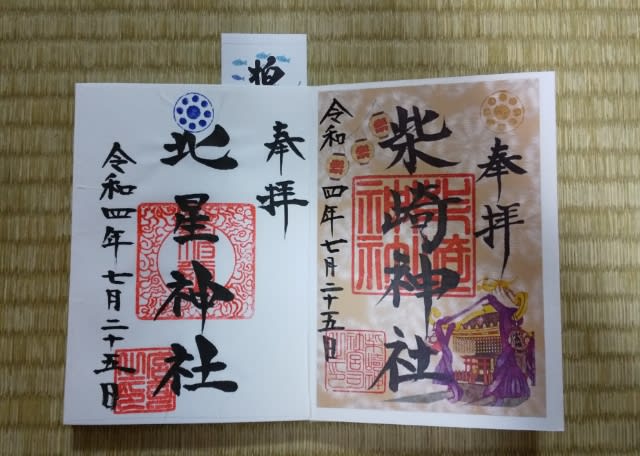 奉拝
柴崎神社
令和四年七月二十五日
奉拝
北星神社
令和四年七月二十五日